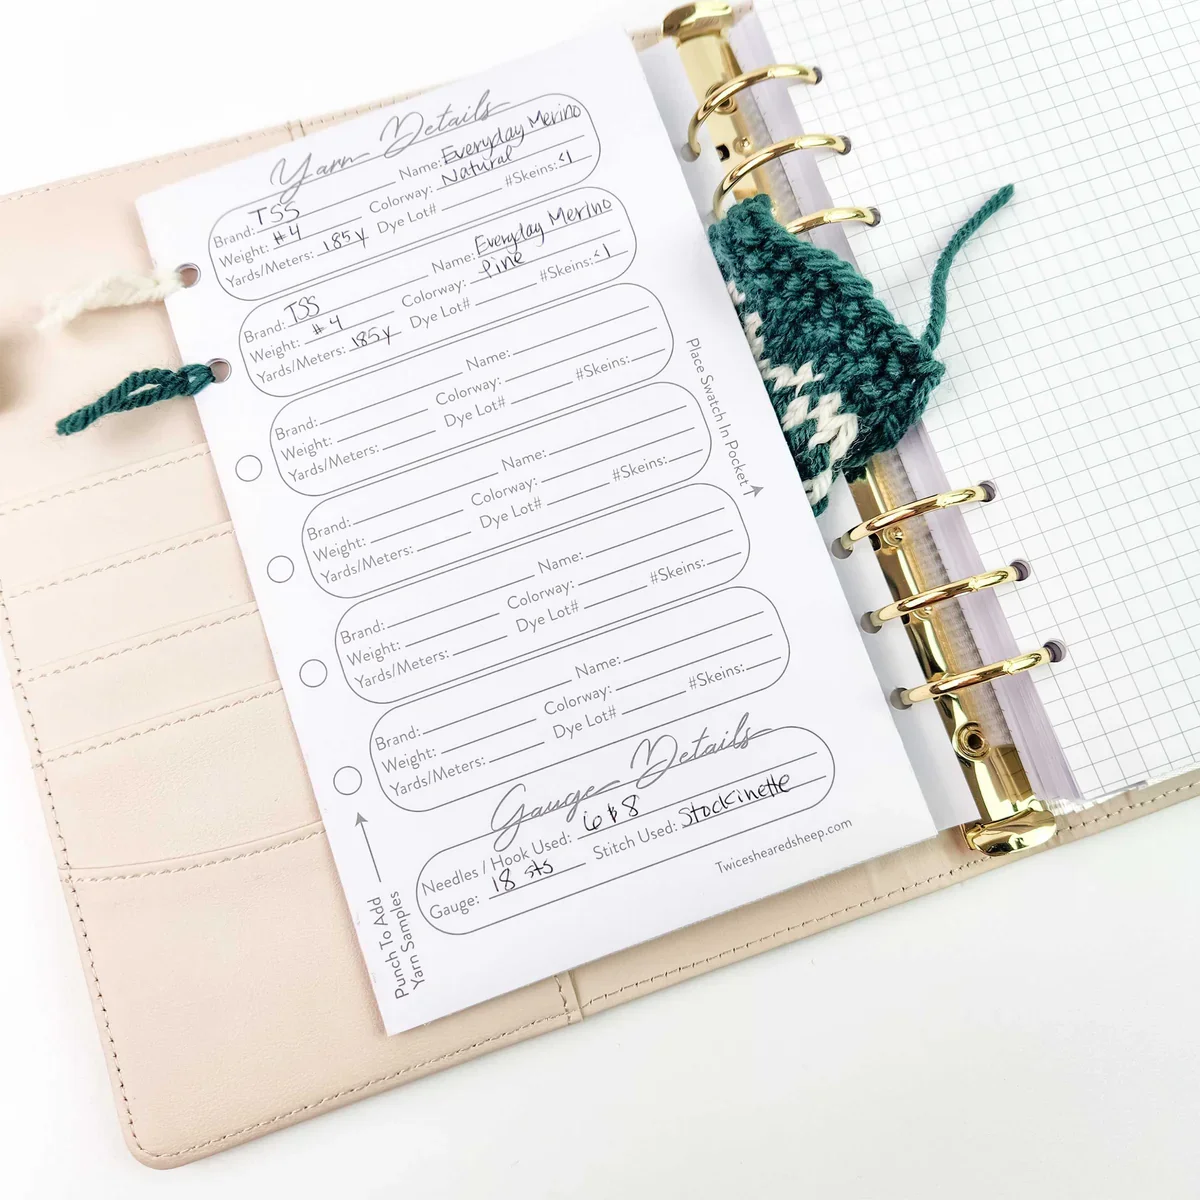 Yarn Details
Brand: TSS Name: Everyday Merino
Weight: #4 Colorway: Natural
Yards/Meters: 185y Dye Lot# #Skeins: <1
Brand: TSS Name: Everyday Merino
Weight: #4 Colorway: Pine
Yards/Meters: 185y Dye Lot# #Skeins: <1
Brand: Name:
Weight: Colorway:
Yards/Meters: Dye Lot# #Skeins:
Brand: Name:
Weight: Colorway:
Yards/Meters: Dye Lot# #Skeins:
Brand: Name:
Weight: Colorway:
Yards/Meters: Dye Lot# #Skeins:
Brand: Name:
Weight: Colorway:
Yards/Meters: Dye Lot# #Skeins:
Place Swatch In Pocket
Punch To Add
Yarn Samples
Gauge Details
Needles / Hook Used: 6 & 8 Stitch Used: Stockinette
Gauge: 18 sts
Twiceshearedsheep.com